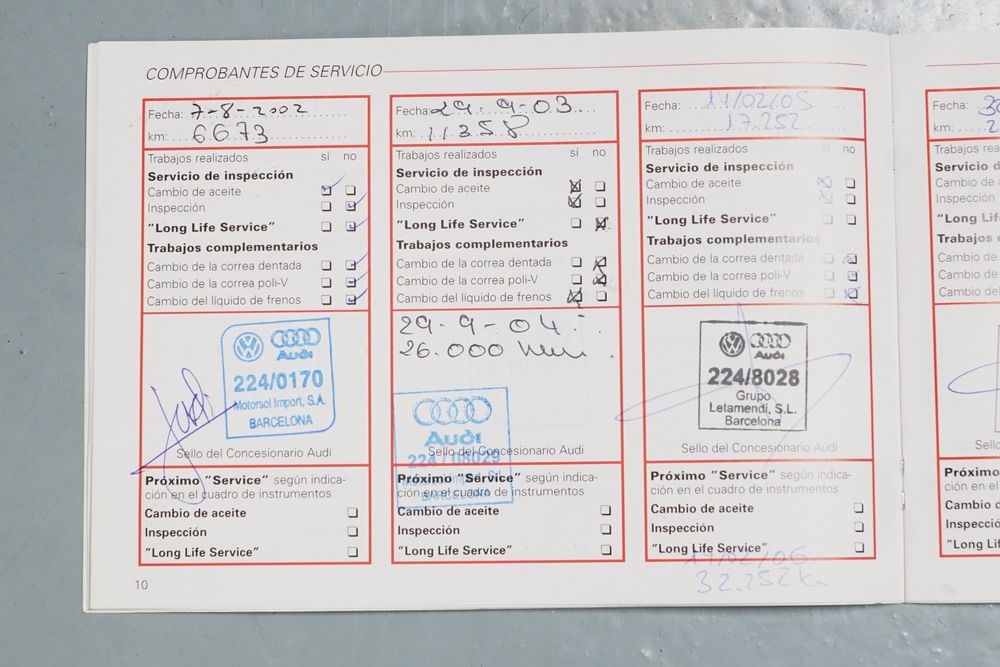 COMPROBANTES DE SERVICIO
Fecha: 7-8-2002
km: 6673
Trabajos realizados sí no
Servicio de inspección
Cambio de aceite
Inspección
"Long Life Service"
Trabajos complementarios
Cambio de la correa dentada
Cambio de la correa poli-V
Cambio del líquido de frenos
Audi
224/0170
Motorsol Import, S.A.
BARCELONA
Sello del Concesionario Audi
Próximo "Service" según indica-
ción en el cuadro de instrumentos
Cambio de aceite
Inspección
"Long Life Service"
10
Fecha: 29-9-03
km: 11358
Trabajos realizados sí no
Servicio de inspección
Cambio de aceite
Inspección
"Long Life Service"
Trabajos complementarios
Cambio de la correa dentada
Cambio de la correa poli-V
Cambio del líquido de frenos
29-9-04
26.000
Audi
Sello del Concesionario Audi
224/08029
BARCELONA
Próximo "Service" según indica-
ción en el cuadro de instrumentos
Cambio de aceite
Inspección
"Long Life Service"
Fecha: 14/02/05
km: 17.252
Trabajos realizados sí no
Servicio de inspección
Cambio de aceite
Inspección
"Long Life Service"
Trabajos complementarios
Cambio de la correa dentada
Cambio de la correa poli-V
Cambio del líquido de frenos
Audi
224/8028
Grupo
Letamendi, S.L.
Barcelona
Sello del Concesionario Audi
Próximo "Service" según indica-
ción en el cuadro de instrumentos
Cambio de aceite
Inspección
"Long Life Service"
14/02/06
32.252
Fecha:
km: 2
Trabajos rea
Servicio d
Cambio de
Inspección
"Long Lif
Trabajos
Cambio de
Cambio de
Cambio del
Sello
Próximo
ción en el
Cambio d
Inspecció
"Long Li